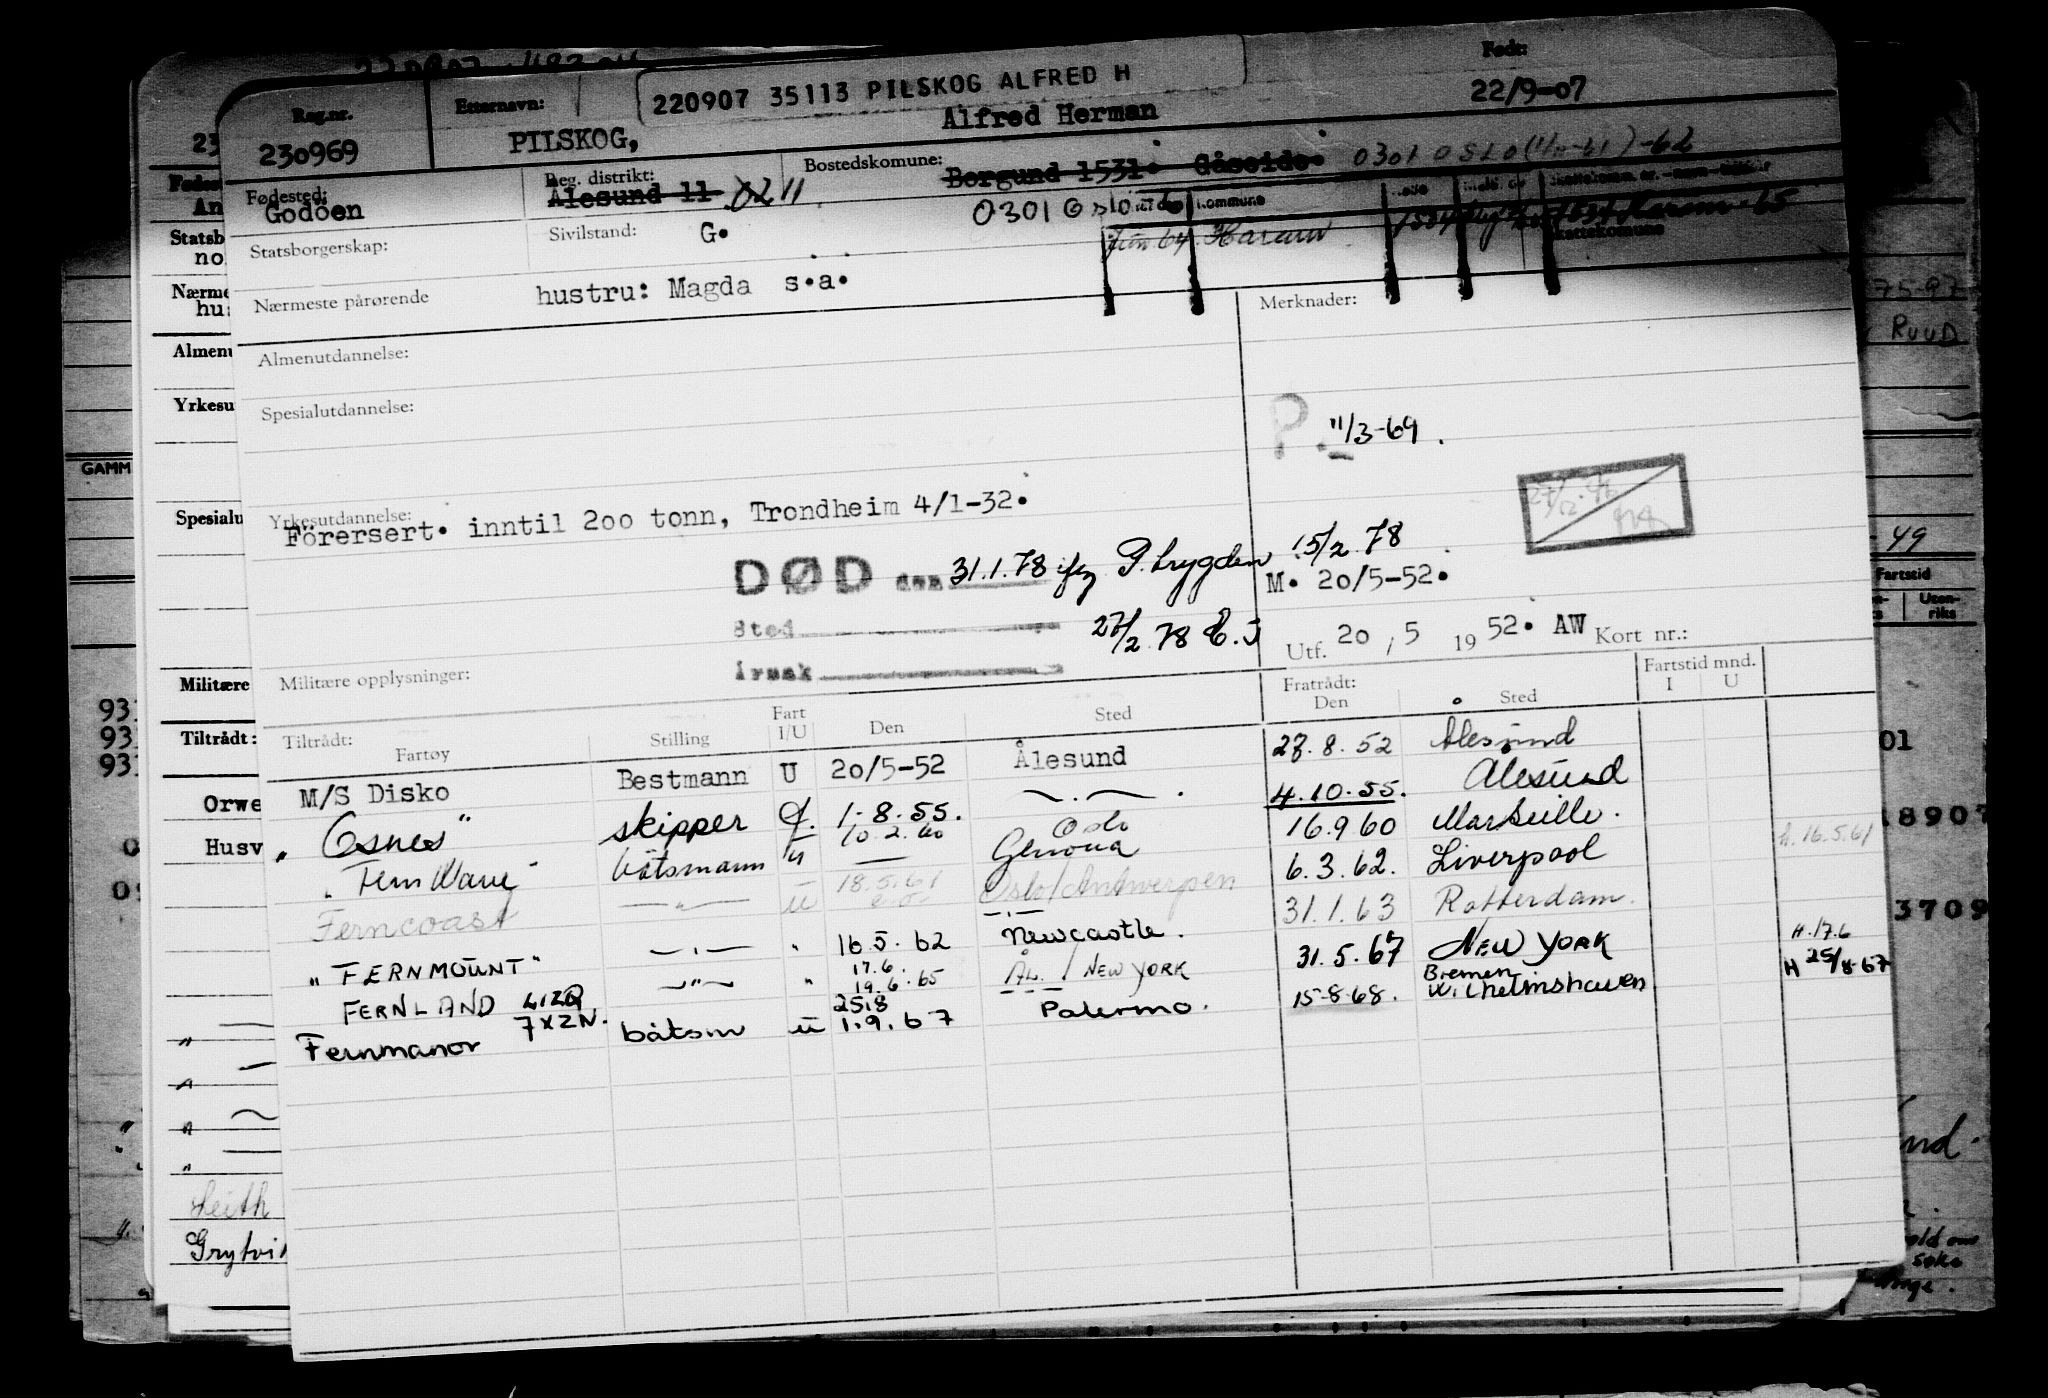 220907 35113 PILSKOG ALFRED H
Født:
22/9-07
Reg.nr.
230969
Etternavn:
PILSKOG,
Alfred Herman
Fødested:
Godöen
Reg. distrikt:
Ålesund 11 0211
Bostedskomune:
Borgund 1531. Gåseide. 0301 OSLO -62
0301 Oslo
kommune
Jan. 64 Haram
skattekomune
Statsborgerskap:
Sivilstand: G.
Nærmeste pårørende
hustru: Magda s.a.
Merknader:
Almenutdannelse:
Spesialutdannelse:
P. 11/3-69.
Yrkesutdannelse:
Förersert. inntil 200 tonn, Trondheim 4/1-32.
DØD den 31.1.78 ifg P. trygden 15/2 78
M. 20/5-52.
Sted
27/2 78 E.J
Årsak
Utf. 20 / 5 19 52. AW Kort nr.:
Militære opplysninger:
Tiltrådt:
Fartøy
Stilling
Fart I/U
Den
Sted
Fratrådt:
Den
Sted
Fartstid mnd.
I U
M/S Disko Bestmann U 20/5-52 Ålesund 28.8.52 Ålesund
" Osnes" skipper 1-8.55. 4.10.55. Ålesund
10.2.60 Oslo
" Fern Wave" båtsmann u Genova 16.9 60 Marseille.
Ferncoast u 18.5.61 Oslo/Antwerpen 6.3.62. Liverpool h. 16.5.61
" FERNMOUNT" 16.5.62 Newcastle. 31.1.63 Rotterdam.
FERNLAND LIZQ 17.6. 19.6.65 ÅL. / NEW YORK 31.5.67 NEW YORK H.17.6
Fernmanor 7XZN. båtsm u 25.8 1.9.67 Palermo. 15-8-68. Bremen Wilhelmshaven H 25/8-67
Statsb
no
Nærme
hus
Almenu
Yrkesu
GAMM
Spesialu
Militære
Tiltrådt:
Orwe
Husv
Leith
Grytvi
75-97
RUUD
49
Fartstid
Uten-
riks
01
18907
3709
søke